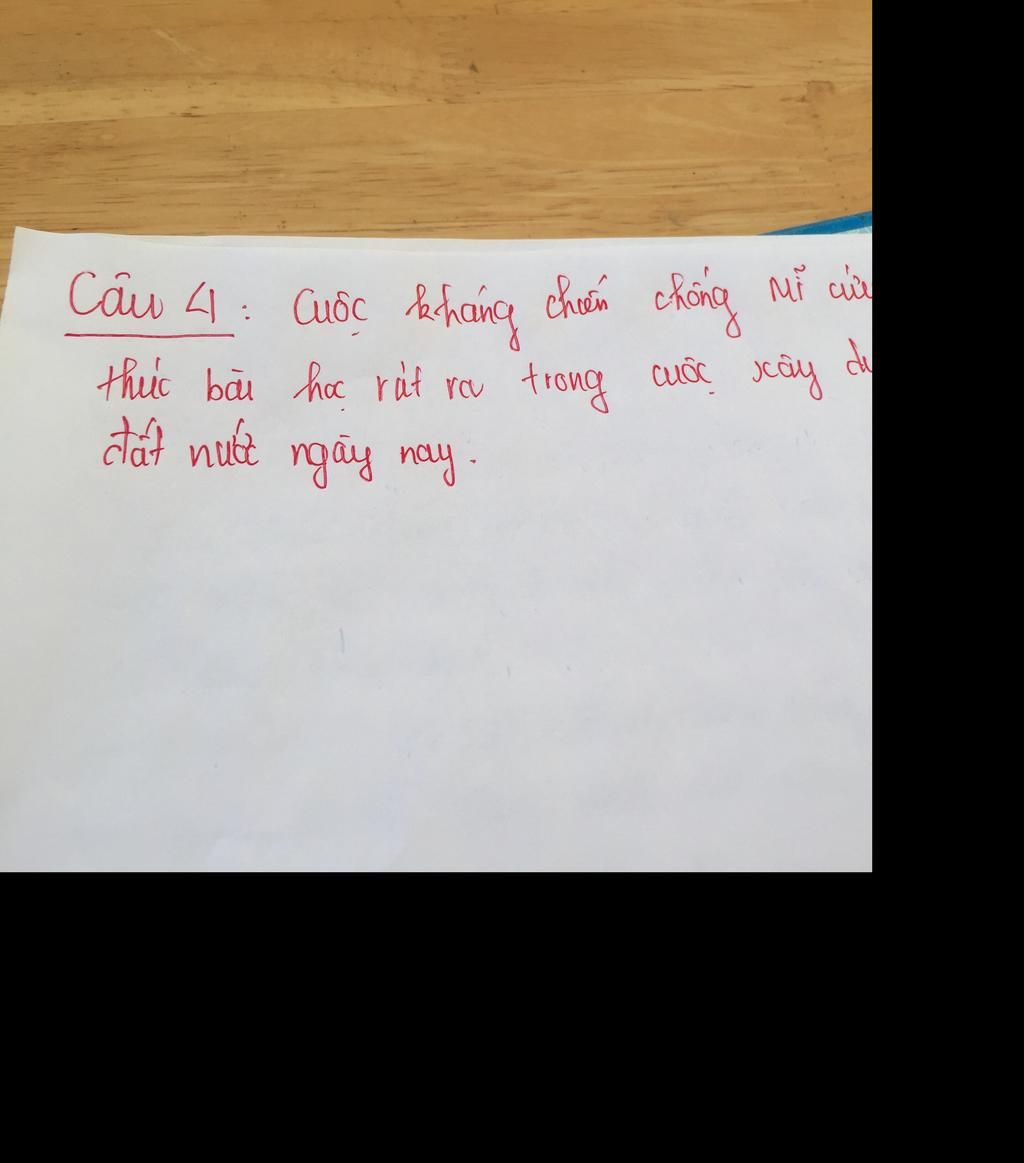 Câu 4: Cuộc kháng chiến chống Mĩ cứu
thức bài học rút ra trong cuộc xây
đất nước ngày nay.